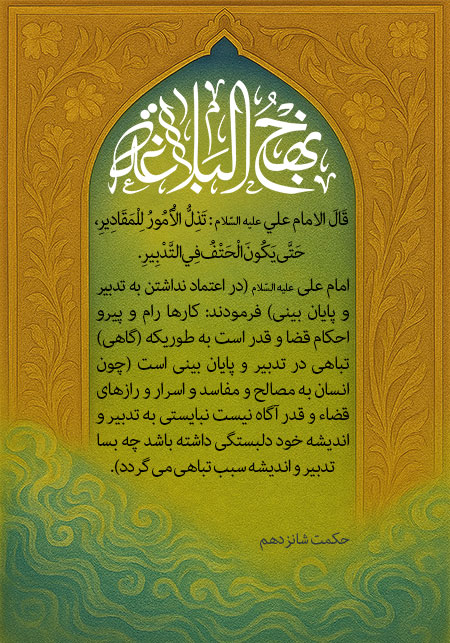 نهج البلاغة
قَالَ الامام علي علیه السّلام : تَذِلُّ الْأُمُورُ لِلْمَقَادِيرِ،
حَتَّى يَكُونَ الْحَتْفُ فِي التَّدْبِيرِ.
امام علی علیه السّلام (در اعتماد نداشتن به تدبیر
و پایان بینی) فرمودند: کارها رام و پیرو
احکام قضا و قدر است به طوریکه (گاهی)
تباهی در تدبیر و پایان بینی است (چون
انسان به مصالح و مفاسد و اسرار و رازهای
قضاء و قدر آگاه نیست نبایستی به تدبیر و
اندیشه خود دلبستگی داشته باشد چه بسا
تدبیر و اندیشه سبب تباهی می گردد).
حکمت شانزدهم